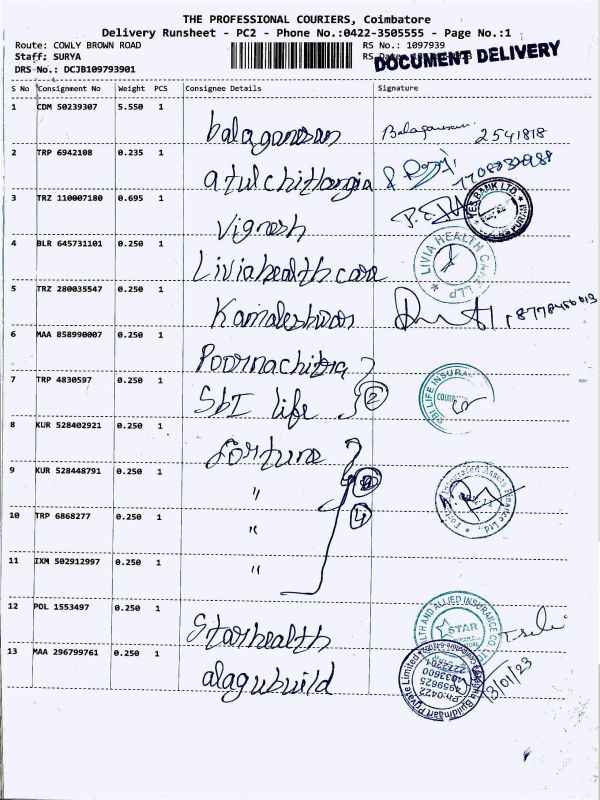 THE PROFESSIONAL COURIERS, Coimbatore
Delivery Runsheet - PC2 - Phone No.:0422-3505555 - Page No.:1
Route: COWLY BROWN ROAD
RS No.: 1097939
DOCUMENT DELIVERY
Staff: SURYA
DRS No.: DCJB109793901
S No Consignment No Weight PCS Consignee Details Signature
1 CDM 50239307 5.550 1 balaganesan 2541818
2 TRP 6942108 0.235 1 atulchitlangia
3 TRZ 110007180 0.695 1 Vignesh YES BANK LTD.
4 BLR 645731101 0.250 1 Liviahealth care LIVIA HEALTH CARE LLP
5 TRZ 280035547 0.250 1 Kamaleshwar
6 MAA 858990007 0.250 1 Poornachitra
7 TRP 4830597 0.250 1 SbI life 2 SBI LIFE INSURA
8 KUR 528402921 0.250 1 fortune
9 KUR 528448791 0.250 1 "
10 TRP 6868277 0.250 1 " 4
11 IXM 502912997 0.250 1 "
12 POL 1553497 0.250 1 Starhealth STAR HEALTH AND ALLIED INSURANCE CO
13 MAA 296799761 0.250 1 alagubuild 13/01/23